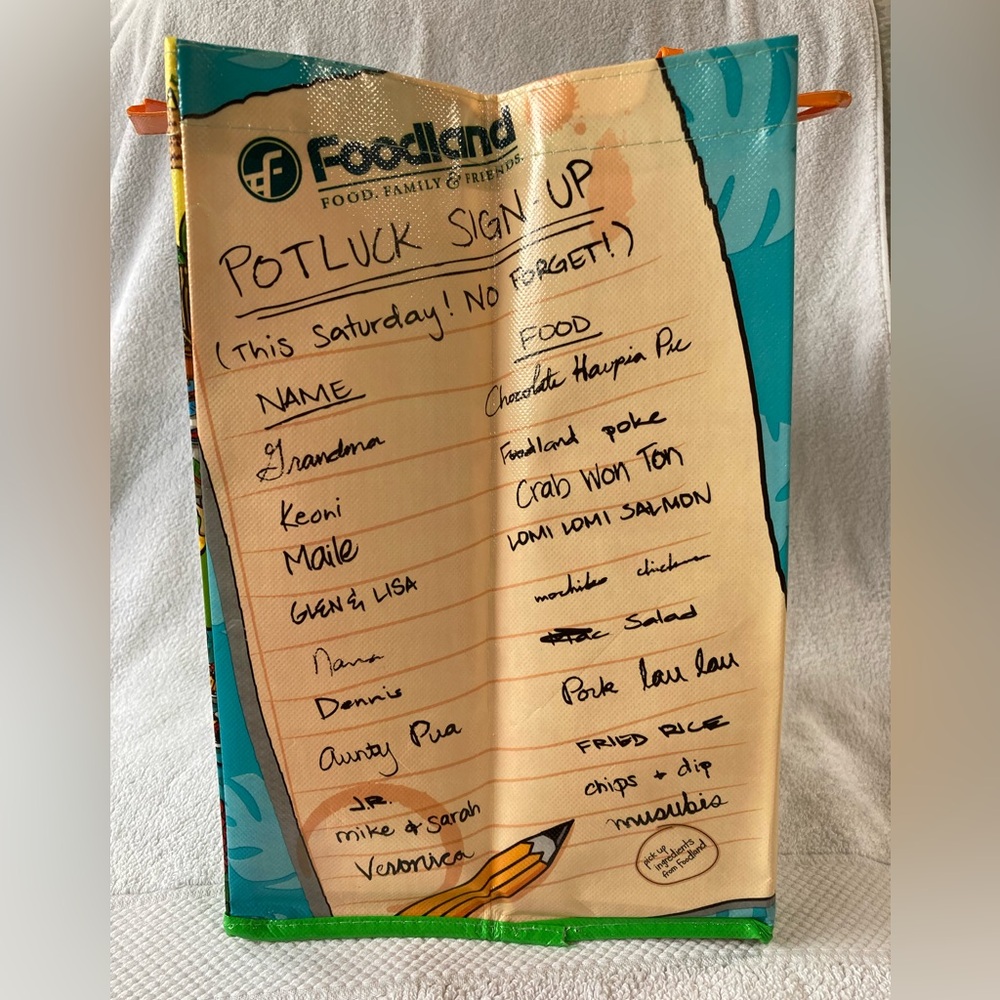 Foodland
FOOD. FAMILY & FRIENDS.
POTLUCK SIGN-UP
(This Saturday! NO FORGET!)
NAME FOOD
Grandma Chocolate Haupia Pie
Keoni Foodland poke
Maile Crab Won Ton
GLEN & LISA LOMI LOMI SALMON
Nana mochiko chicken
Dennis Mac Salad
Aunty Pua Pork lau lau
J.R. FRIED RICE
mike & Sarah chips + dip
Veronica musubis
pick up
ingredients
from Foodland